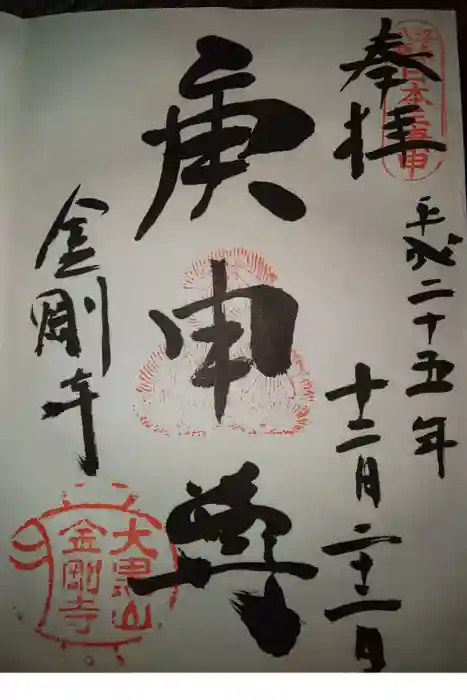 日本三庚申
奉拝
平成二十五年
十二月二十一日
庚申尊
金剛寺
大黒山
金剛寺